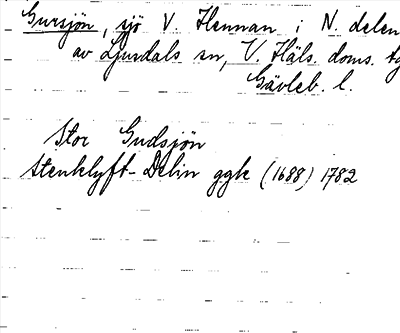 Gursjön, sjö V. Hennan i N. delen
av Ljusdals sn, V. Häls. doms.
Gävleb. l.
Stor Gudsjön
Stenklyft-Delin ggk (1688) 1782